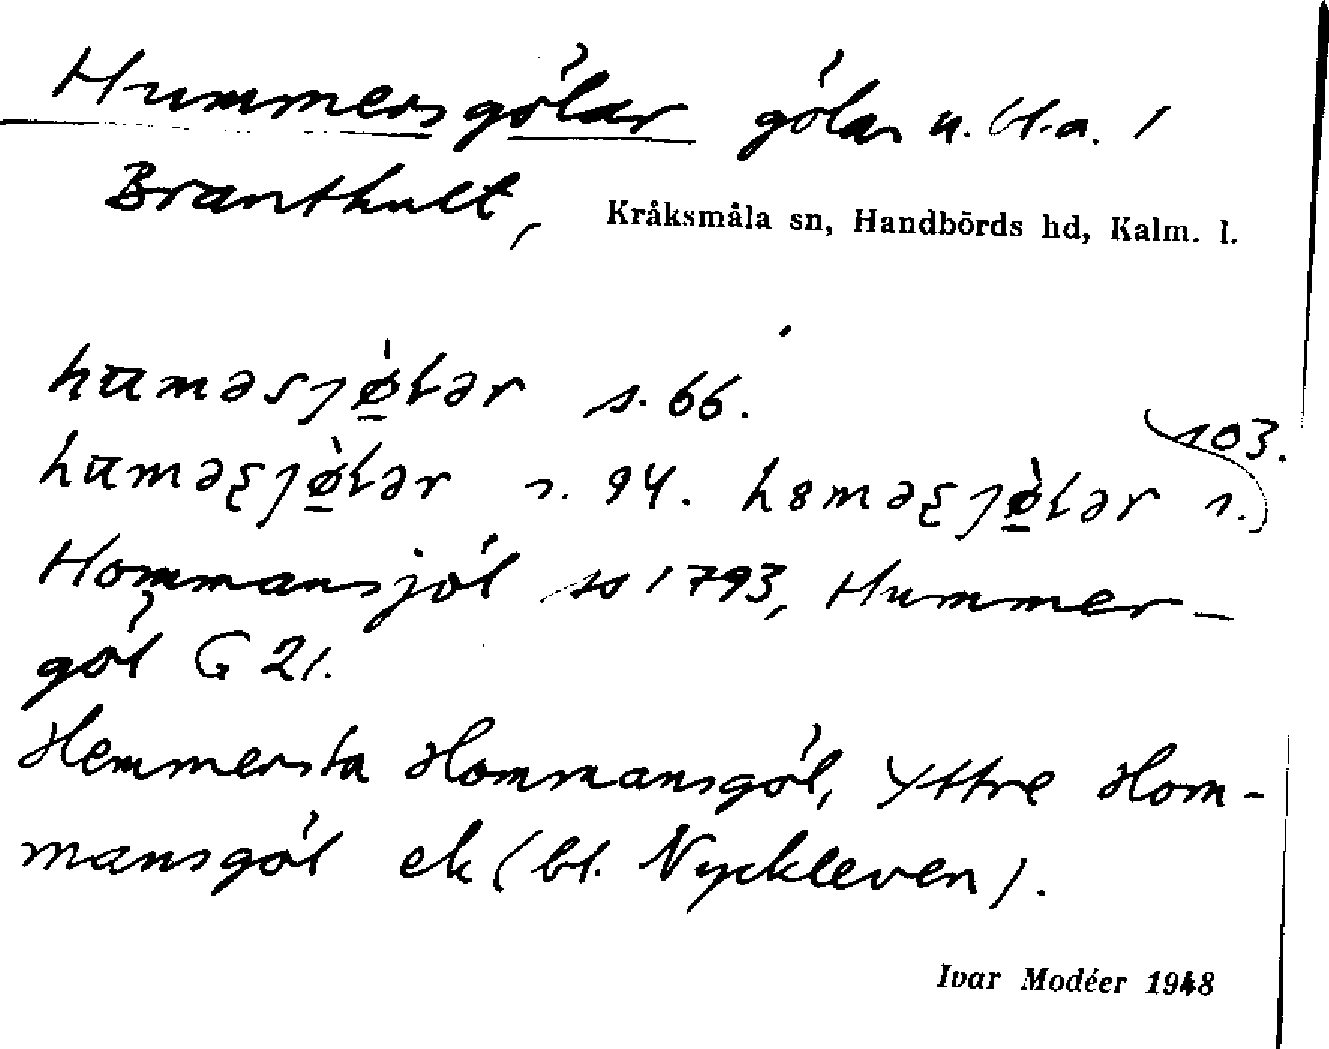 Hummersgölar gölar u. bl.a. /
Branthult, Kråksmåla sn, Handbörds hd, Kalm. l.
huməsjø̱̀lər s. 66.
s. 94. s. 103.
Hommansjöl so 1793, Hummer-
göl G 21.
Hemmersta Hommansgöl, Yttre Hom-
mansgöl ek (bl. Nyckleven).
Ivar Modéer 1948